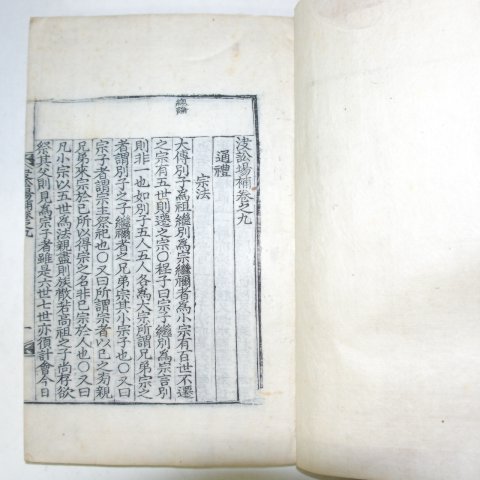 決訟場補卷之九
通禮
宗法
大傳別子爲祖繼別爲宗繼禰者爲小宗有百世不遷
之宗有五世則遷之宗○程子曰宗子繼別爲宗言別
則非一也如別子五人五人各爲大宗所謂兄弟宗之
者謂別子之子繼禰者之兄弟宗其小宗子也○又曰
宗子者謂宗主祭祀也○又曰所謂宗者以己之旁親
兄弟來宗於己所以得宗之名非己宗於人也○又曰
凡小宗以五世爲法親盡則族散若高祖之子尚存欲
祭其父則見爲宗子者雖是六世七世亦須計會今日
總論